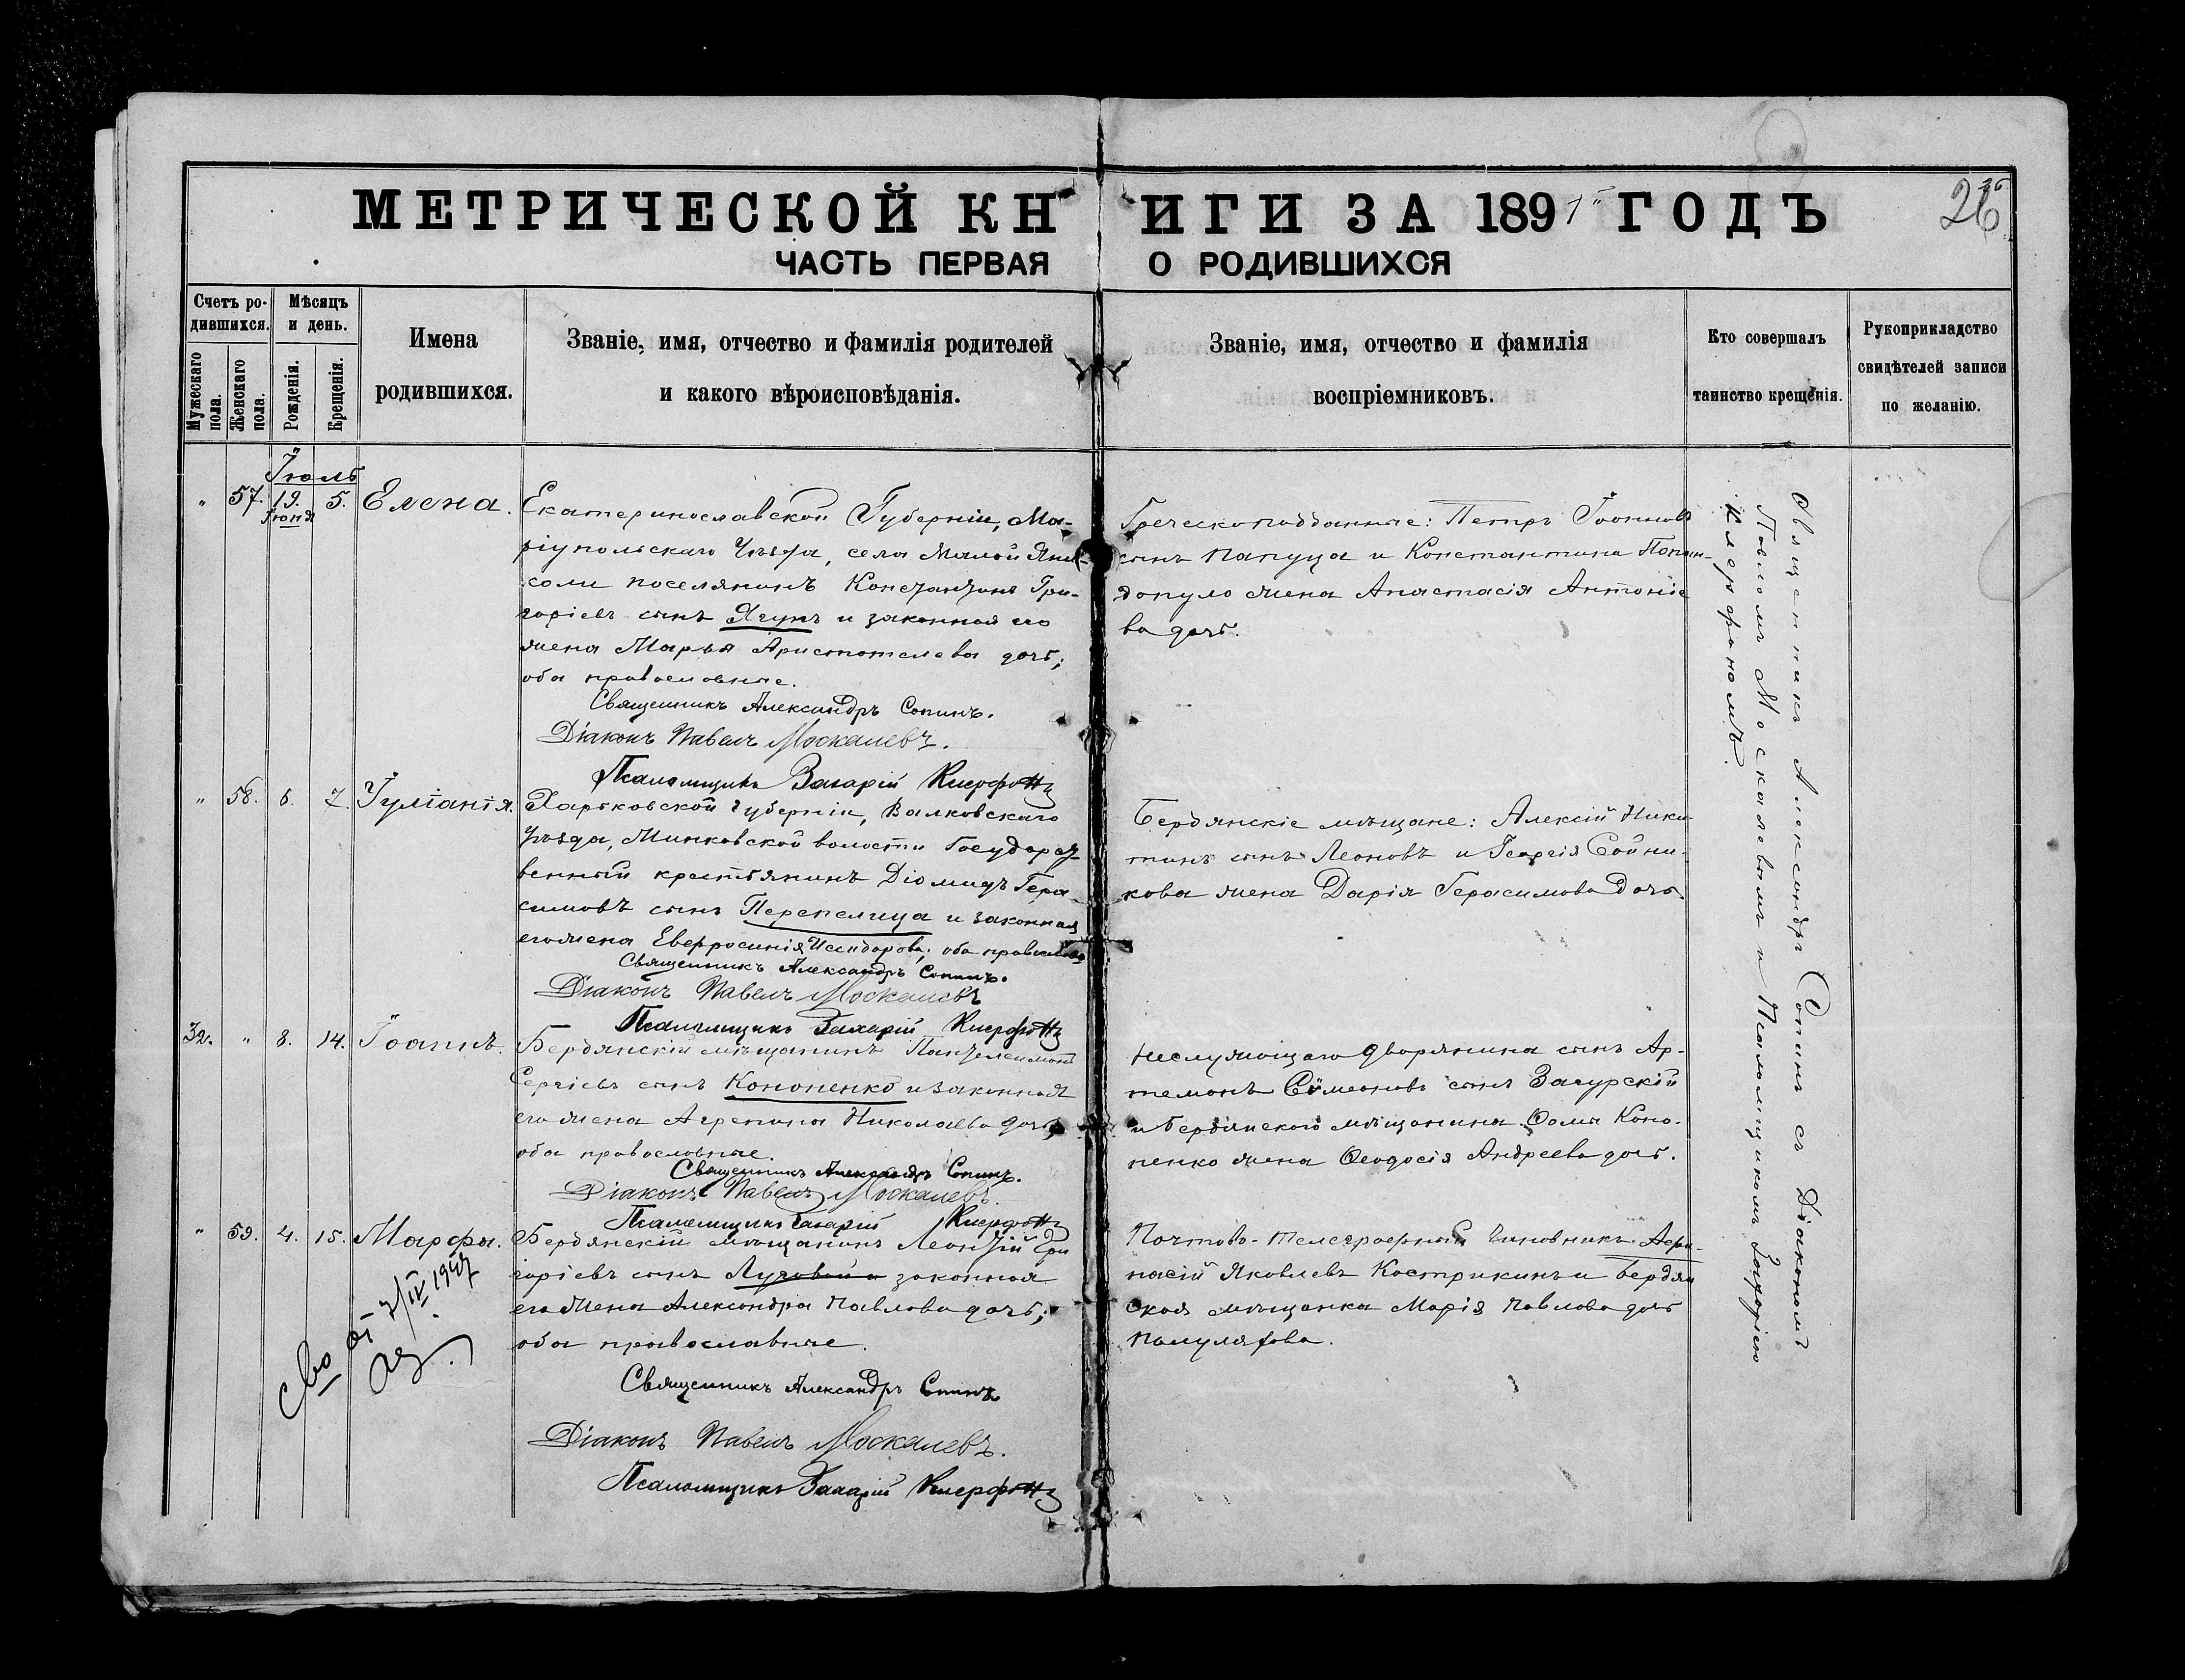 МЕТРИЧЕСКОЙ КНИГИ ЗА 1891 ГОДЪ
26
ЧАСТЬ ПЕРВАЯ О РОДИВШИХСЯ
Счетъ родившихся.
Мужескаго пола.
Женскаго пола.
Мѣсяцъ и день.
Рожденія.
Крещенія.
Имена
родившихся.
Званіе, имя, отчество и фамилія родителей
и какого вѣроисповѣданія.
Званіе, имя, отчество и фамилія
воспріемниковъ.
Кто совершалъ
таинство крещенія.
Рукоприкладство
свидѣтелей записи
по желанію.
Іюль
" 57. 19. Іюня 5. Елена.
Екатеринославской Губерніи, Ма-
ріупольскаго Уѣзда, села Малой Яни-
соли поселянинъ Константинъ Гри-
горіевъ сынъ Ягупъ и законная его
жена Марья Аристотелева дочь;
оба православные.
Священникъ Александръ Сопинъ.
Діаконъ Павелъ Москалевъ.
Псаломщикъ Захарій Ксерофонъ
Греческоподданные: Петръ Іоанновъ
сынъ Папуца и Константина Попан-
допуло жена Анастасія Антоніе
ва дочь.
" 58. 6. 7. Іуліанія.
Харьковской губерніи, Валковскаго
Уѣзда, Минковской волости Государст-
венный крестьянинъ Діомидъ Гера-
симовъ сынъ Перепелица и законная
его жена Евфросинія Исидорова; оба православ
Священникъ Александръ Сопинъ.
Діаконъ Павелъ Москалевъ
Псаломщикъ Захарій
Бердянскіе мѣщане: Алексій Ники-
тинъ сынъ Леоновъ и Георгія Сойни-
кова жена Дарія Герасимова дочь.
32. " 8. 14. Іоаннъ.
Бердянскій мѣщанинъ Пантелеимонъ
Сергіевъ сынъ Кононенко и законная
его жена Агрепина Николаева дочь;
оба православные.
Священникъ Александръ Сопинъ.
Діаконъ Павелъ Москалевъ.
Псаломщикъ Захарій
Неслужащаго дворянина сынъ Ар-
темонъ Сѵмеоновъ сынъ Загурскій
и Бердянскаго мѣщанина Ѳомы Коно-
ненко жена Ѳеодосія Андреева дочь.
" 59. 4. 15. Марфа.
Бердянскій мѣщанинъ Леонтій Гри
горіевъ сынъ Луговой и законная
его жена Александра Павлова дочь;
оба православные.
Священникъ Александръ Сопинъ
Діаконъ Павелъ Москалевъ.
Псаломщикъ Захарій
Почтово-телеграфный чиновникъ Аѳа-
насій Яковлевъ Кострикинъ и Бердян
ская мѣщанка Марія Павлова дочь
с-во от 7/IV 1947
Священникъ Александръ Сопинъ съ Діакономъ
Павломъ Москалевымъ и Псаломщикомъ Захаріею